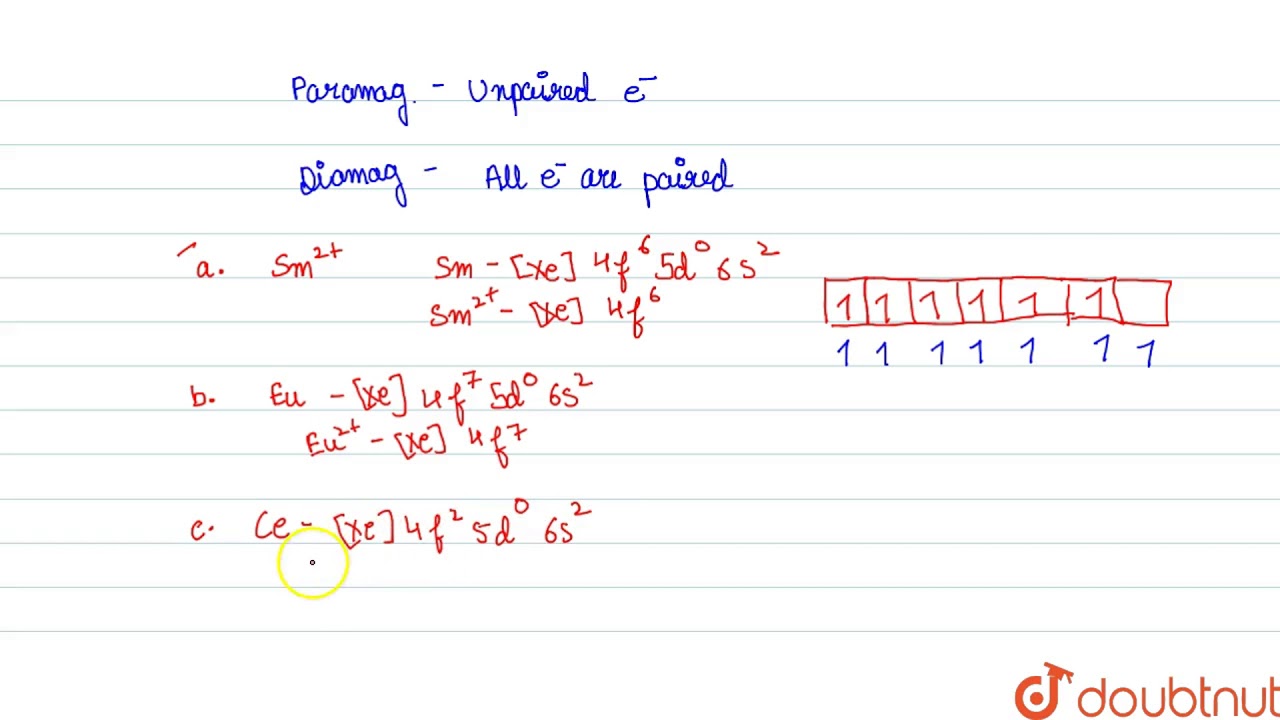 Paramag. - Unpaired e⁻
Diamag - All e⁻ are paired
a. Sm²⁺ Sm - [Xe] 4f⁶ 5d⁰ 6s²
Sm²⁺ - [Xe] 4f⁶
1 1 1 1 1 1
1 1 1 1 1 1 1
b. Eu - [Xe] 4f⁷ 5d⁰ 6s²
Eu²⁺ - [Xe] 4f⁷
c. Ce - [Xe] 4f² 5d⁰ 6s²
doubtnut